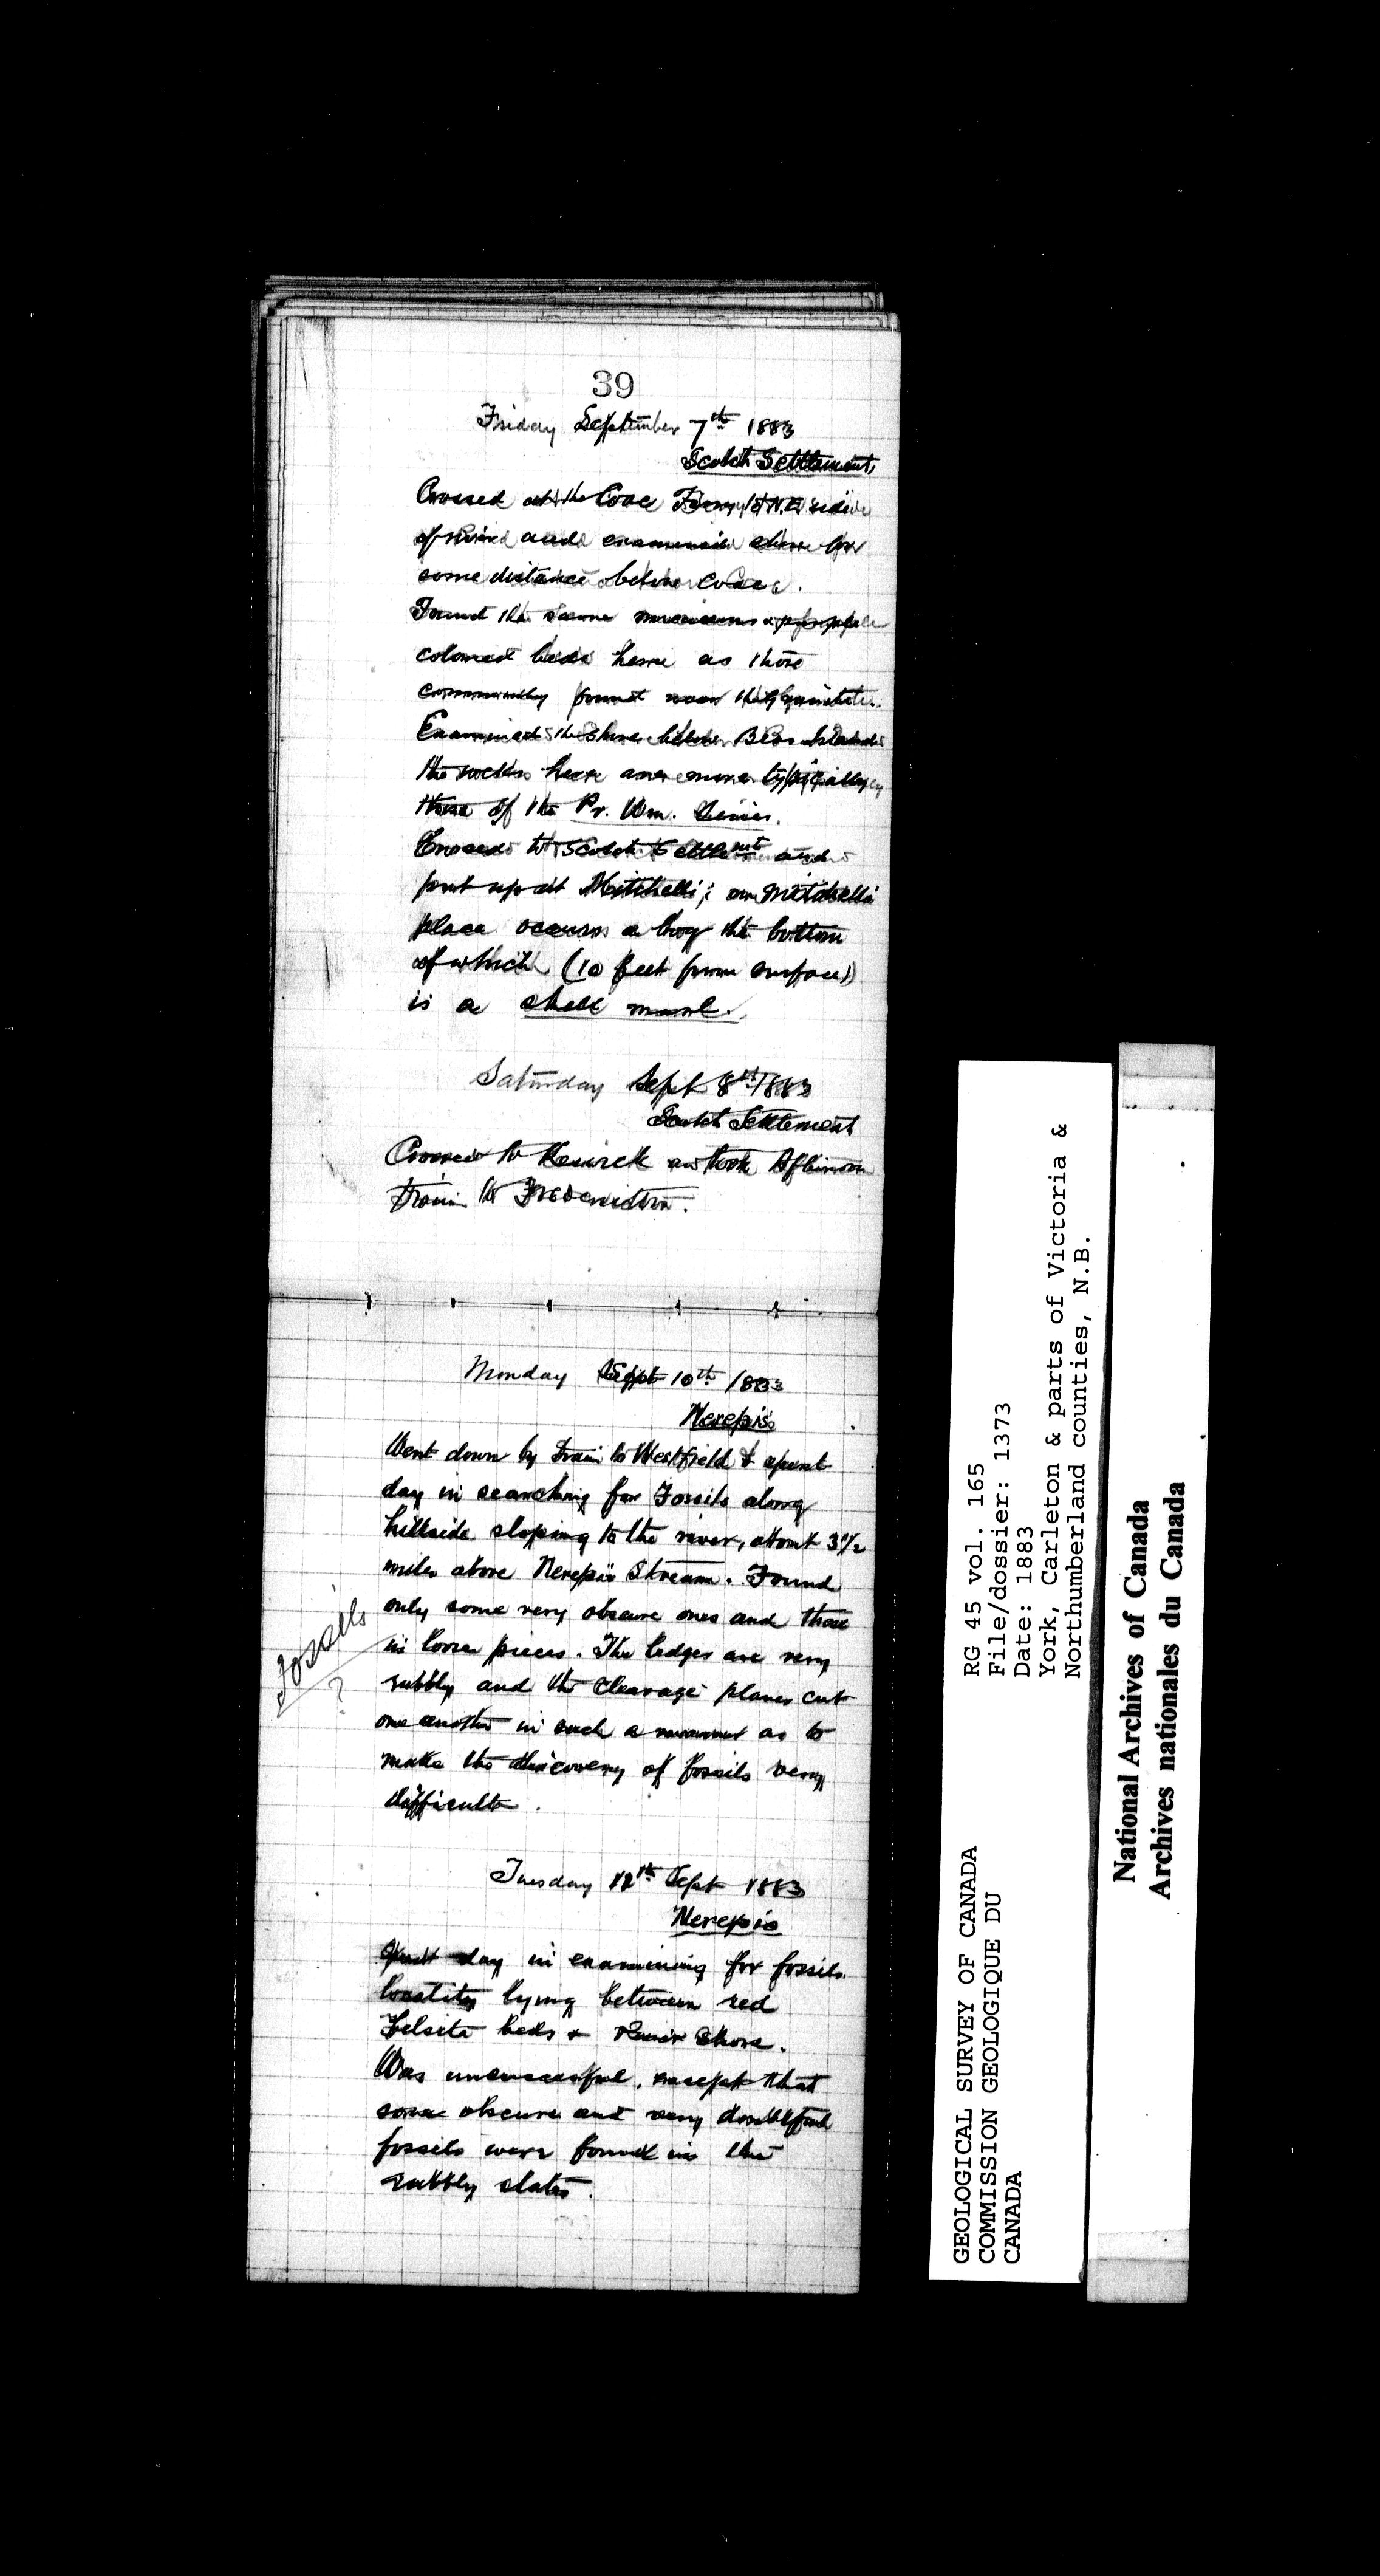 39
Friday September 7th 1883
Scotch Settlement,
Crossed at the Coac Ferry to N.E. side
of River and examined shore for
some distance below Coac.
Found the same micaceous & purple
colored beds here as those
commonly found near the Granite.
Examined the Shore below Bear Island
the rocks here are more typically
those of the Pr. Wm. Series.
Crossed to Scotch Settlemnt and
put up at Mitchells; on Mitchells
place occurs a bog the bottom
of which (10 feet from surface)
is a shell marl.
Saturday Sept 8th 1883
Scotch Settlement
Crossed to Keswick and took Afternoon
Train to Fredericton.
Monday Sept 10th 1883
Nerepis
Went down by Train to Westfield & spent
day in searching for Fossils along
hillside sloping to the river, about 3 1/2
miles above Nerepis Stream. Found
only some very obscure ones and those
in loose pieces. The ledges are very
rubbly and the cleavage planes cut
one another in such a manner as to
make the discovery of fossils very
difficult.
Fossils
?
Tuesday 12th Sept 1883
Nerepis
Spent day in examining for fossils
locality lying between red
Felsite beds & River Shore.
Was unsuccessful, except that
some obscure and very doubtful
fossils were found in the
rubbly slates.
GEOLOGICAL SURVEY OF CANADA
COMMISSION GEOLOGIQUE DU
CANADA
RG 45 vol. 165
File/dossier: 1373
Date: 1883
York, Carleton & parts of Victoria &
Northumberland counties, N.B.
National Archives of Canada
Archives nationales du Canada